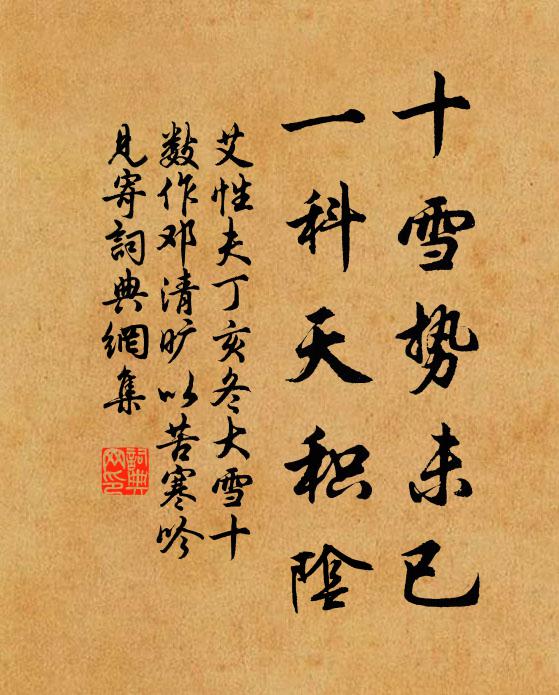 十雪势未已
一科天积陰
艾性夫丁亥冬大雪十
数作邓清旷以苦寒吟
见寄詞典網集
詞典
网印